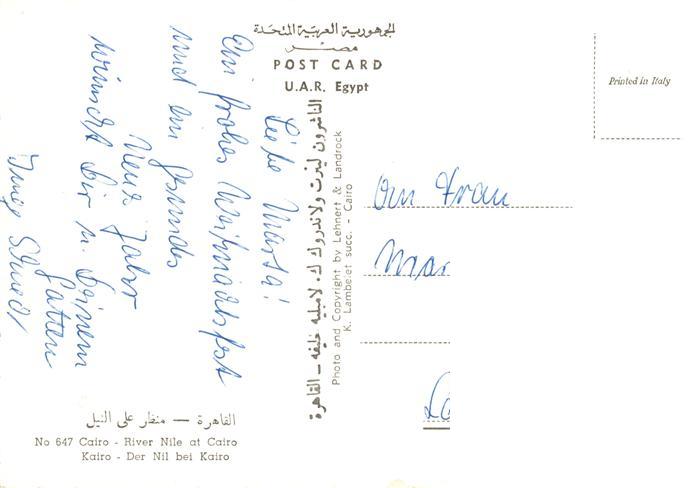 الجمهورية العربية المتحدة
مصر
POST CARD
U.A.R. Egypt
Printed in Italy
Liebe Marta!
Ein frohes Weihnachtsfest
und ein gesundes
Neues Jahr
wünscht Dir u. Deinem
Gatten
الناشرون لينرت ولاندروك ك. لامبليه خليفه - القاهرة
Photo and Copyright by Lehnert & Landrock
K. Lambelet succ. - Cairo
An Frau
القاهرة — منظر على النيل
No 647 Cairo - River Nile at Cairo
Kairo - Der Nil bei Kairo